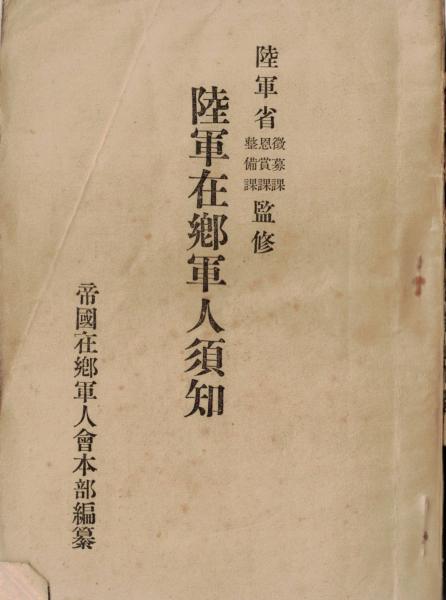 陸軍省徵募課恩賞課整備課監修
陸軍在鄕軍人須知
帝國在鄕軍人會本部編纂